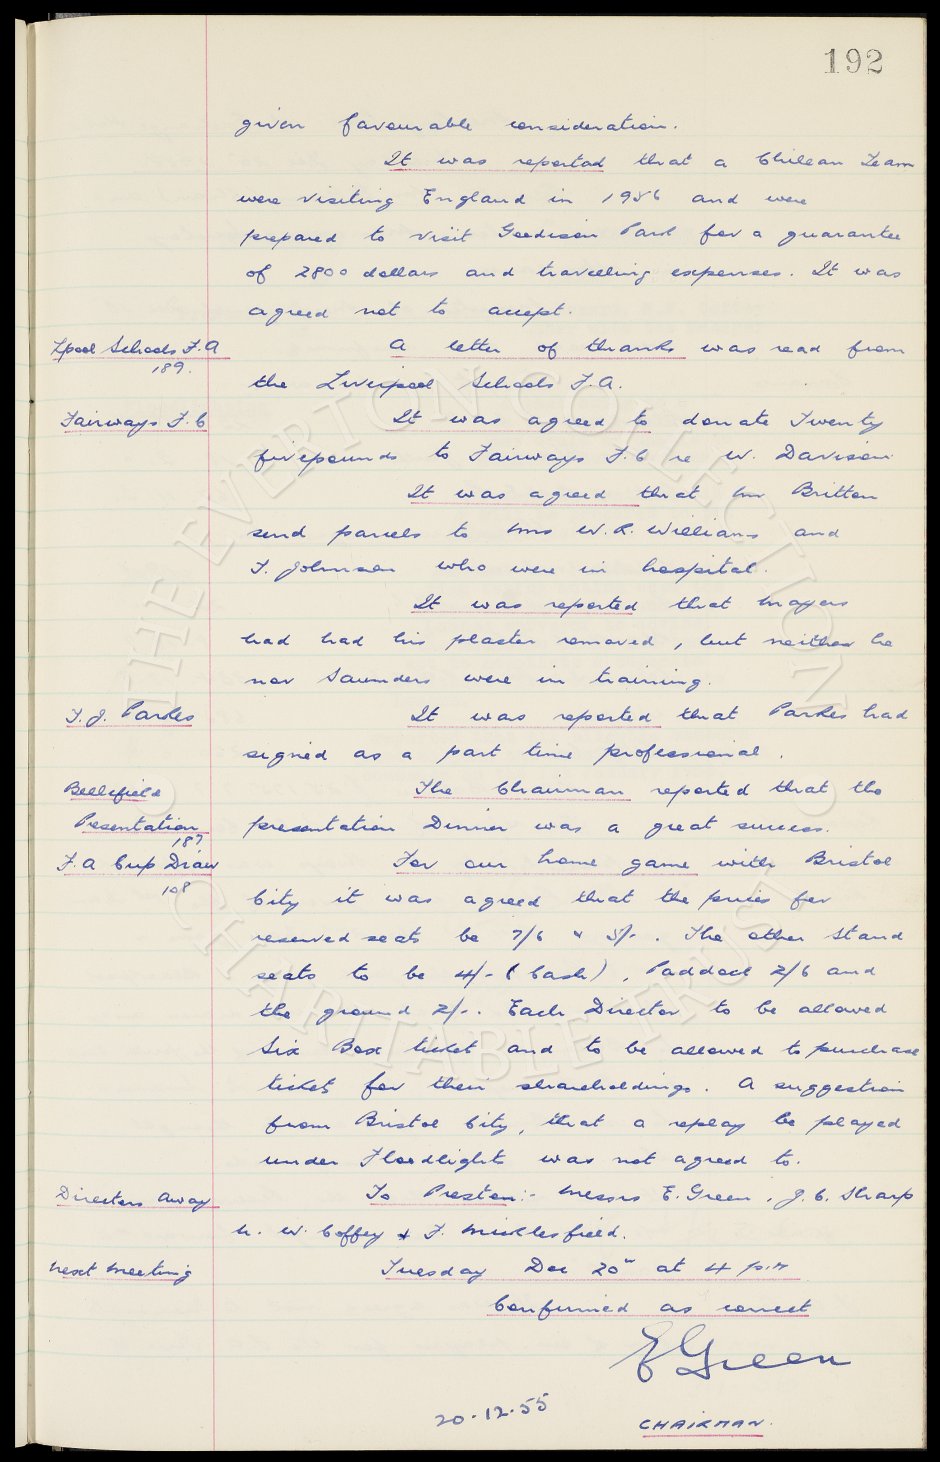 192
given favourable consideration.
It was reported that a Chilean Team
were visiting England in 1956 and were
prepared to visit Goodison Park for a guarantee
of 2800 dollars and travelling expenses. It was
agreed not to accept.
Lpool Schools F.A A letter of thanks was read from
189.
the Liverpool Schools F.A.
Fairways F.C It was agreed to donate Twenty
five pounds to Fairways F.C re W. Davison
It was agreed that Mr Britton
send parcels to Mrs W.R. Williams and
T. Johnson who were in hospital.
It was reported that Mayers
had had his plaster removed, but neither he
nor Saunders were in training.
T.J. Parkes It was reported that Parkes had
signed as a part time professional.
Bellefield The Chairman reported that the
Presentation presentation Dinner was a great success.
187
F.A Cup Draw For our home game with Bristol
108
City it was agreed that the prices for
reserved seats be 7/6 & 5/-. The other Stand
seats to be 4/- (Cash), Paddock 2/6 and
the ground 2/-. Each Director to be allowed
Six Box ticket and to be allowed to purchase
tickets for their shareholdings. A suggestion
from Bristol City, that a replay be played
under Floodlights was not agreed to.
Directors Away To Preston:- Messrs E. Green, J.C. Sharp
N. W. Coffey & F. Micklesfield.
Next Meeting Tuesday Dec 20th at 4 p.m
Confirmed as correct
E Green
20.12.55
CHAIRMAN.
THE EVERTON COLLECTION
CHARITABLE TRUST